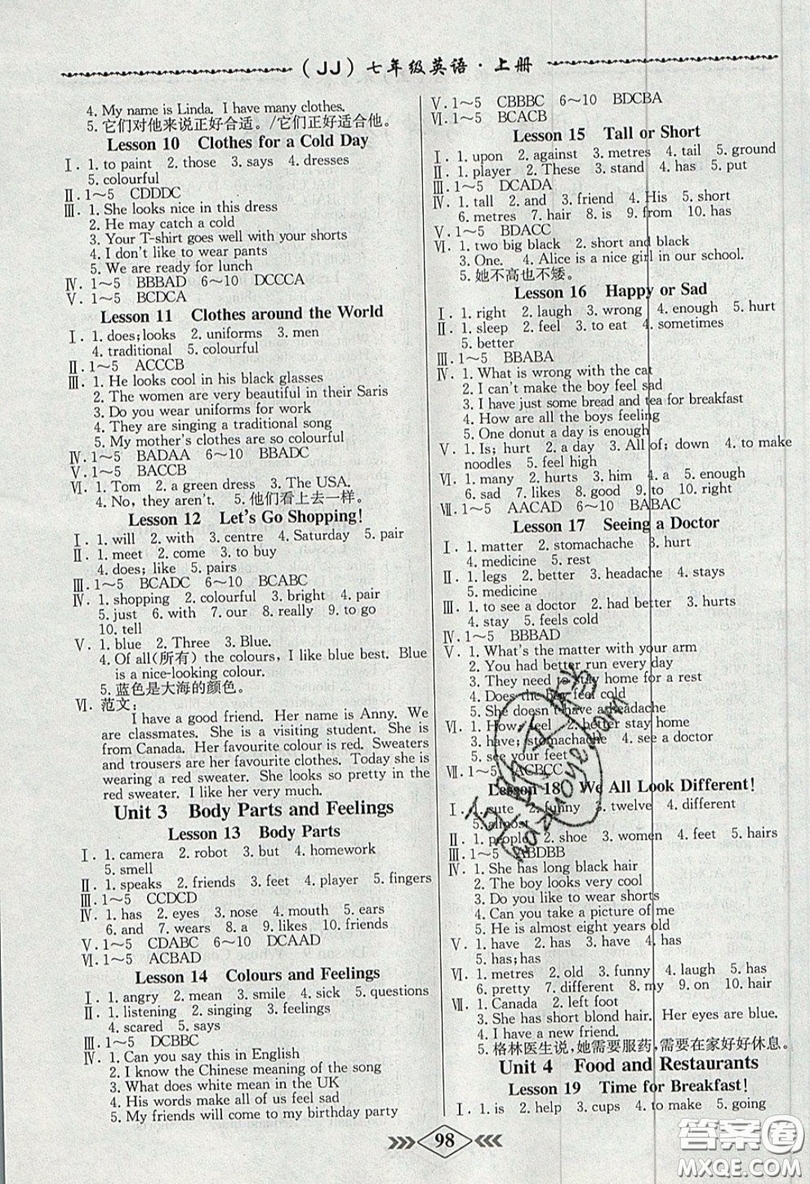 (JJ)七年级英语·上册
4. My name is Linda. I have many clothes.
5. 它们对他来说正好合适。/它们正好适合他。
Lesson 10 Clothes for a Cold Day
Ⅰ. 1. to paint 2. those 3. says 4. dresses
5. colourful
Ⅱ. 1~5 CDDDC
Ⅲ. 1. She looks nice in this dress
2. He may catch a cold
3. Your T-shirt goes well with your shorts
4. I don't like to wear pants
5. We are ready for lunch
Ⅳ. 1~5 BBBAD 6~10 DCCCA
Ⅴ. 1~5 BCDCA
Lesson 11 Clothes around the World
Ⅰ. 1. does; looks 2. uniforms 3. men
4. traditional 5. colourful
Ⅱ. 1~5 ACCCB
Ⅲ. 1. He looks cool in his black glasses
2. The women are very beautiful in their Saris
3. Do you wear uniforms for work
4. They are singing a traditional song
5. My mother's clothes are so colourful
Ⅳ. 1~5 BADAA 6~10 BBADC
Ⅴ. 1~5 BACCB
Ⅵ. 1. Tom 2. a green dress 3. The USA.
4. No, they aren't. 5. 他们看上去一样。
Lesson 12 Let's Go Shopping!
Ⅰ. 1. will 2. with 3. centre 4. Saturday 5. pair
Ⅱ. 1. meet 2. come 3. to buy
4. does; like 5. pairs
Ⅲ. 1~5 BCADC 6~10 BCABC
Ⅳ. 1. shopping 2. colourful 3. bright 4. pair
5. just 6. with 7. our 8. really 9. to go
10. tell
Ⅴ. 1. blue 2. Three 3. Blue.
4. Of all(所有) the colours, I like blue best. Blue
is a nice-looking colour.
5. 蓝色是大海的颜色。
Ⅵ. 范文:
I have a good friend. Her name is Anny. We
are classmates. She is a visiting student. She is
from Canada. Her favourite colour is red. Sweaters
and trousers are her favourite clothes. Today she is
wearing a red sweater. She looks so pretty in the
red sweater. I like her very much.
Unit 3 Body Parts and Feelings
Lesson 13 Body Parts
Ⅰ. 1. camera 2. robot 3. but 4. homework
5. smell
Ⅱ. 1. speaks 2. friends 3. feet 4. player 5. fingers
Ⅲ. 1~5 CCDCD
Ⅳ. 1. has 2. eyes 3. nose 4. mouth 5. ears
6. and 7. wears 8. a 9. likes 10. friend
Ⅴ. 1~5 CDABC 6~10 DCAAD
Ⅵ. 1~5 ACBAD
Lesson 14 Colours and Feelings
Ⅰ. 1. angry 2. mean 3. smile 4. sick 5. questions
Ⅱ. 1. listening 2. singing 3. feelings
4. scared 5. says
Ⅲ. 1~5 DCBBC
Ⅳ. 1. Can you say this in English
2. I know the Chinese meaning of the song
3. What does white mean in the UK
4. His words make all of us feel sad
5. My friends will come to my birthday party
Ⅴ. 1~5 CBBBC 6~10 BDCBA
Ⅵ. 1~5 BCACB
Lesson 15 Tall or Short
Ⅰ. 1. upon 2. against 3. metres 4. tail 5. ground
Ⅱ. 1. player 2. These 3. stand 4. has 5. put
Ⅲ. 1~5 DCADA
Ⅳ. 1. tall 2. and 3. friend 4. His 5. short
6. metres 7. hair 8. is 9. from 10. has
Ⅴ. 1~5 BDACC
Ⅵ. 1. two big black 2. short and black
3. One. 4. Alice is a nice girl in our school.
5. 她不高也不矮。
Lesson 16 Happy or Sad
Ⅰ. 1. right 2. laugh 3. wrong 4. enough 5. hurt
Ⅱ. 1. sleep 2. feel 3. to eat 4. sometimes
5. better
Ⅲ. 1~5 BBABA
Ⅳ. 1. What is wrong with the cat
2. I can't make the boy feel sad
3. I have just some bread and tea for breakfast
4. How are all the boys feeling
5. One donut a day is enough
Ⅴ. 1. Is; hurt 2. a day 3. All of; down 4. to make
noodles 5. feel high
Ⅵ. 1. many 2. hurts 3. him 4. a 5. enough
6. sad 7. likes 8. good 9. and 10. to
Ⅶ. 1~5 AACAD 6~10 BABAC
Lesson 17 Seeing a Doctor
Ⅰ. 1. matter 2. stomachache 3. hurt
4. medicine 5. rest
Ⅱ. 1. legs 2. better 3. headache 4. stays
5. medicine
Ⅲ. 1. to see a doctor 2. had better 3. hurts
4. stay 5. feels cold
Ⅳ. 1~5 BBBAD
Ⅴ. 1. What's the matter with your arm
2. You had better run every day
3. They need to stay home for a rest
4. Does the boy feel cold
5. She doesn't have a headache
Ⅵ. 1. How; feel 2. better stay home
3. have; stomachache 4. see a doctor
5. see your feet
Ⅶ. 1~5 ACBCC
Lesson 18 We All Look Different!
Ⅰ. 1. cute 2. funny 3. twelve 4. different
5. almost
Ⅱ. 1. people 2. shoe 3. women 4. feet 5. hairs
Ⅲ. 1~5 ABDBB
Ⅳ. 1. She has long black hair
2. The boy looks very cool
3. Do you like to wear shorts
4. Can you take a picture of me
5. He is almost eight years old
Ⅴ. 1. have 2. has 3. have 4. have
5. has; has
Ⅵ. 1. metres 2. old 3. funny 4. laugh 5. has
6. pretty 7. different 8. my 9. on 10. have
Ⅶ. 1. Canada 2. left foot
3. She has short blond hair. Her eyes are blue.
4. I have a new friend.
5. 格林医生说,她需要服药,需要在家好好休息。
Unit 4 Food and Restaurants
Lesson 19 Time for Breakfast!
Ⅰ. 1. is 2. help 3. cups 4. to make 5. going
98
答案圈
MXQE.COM